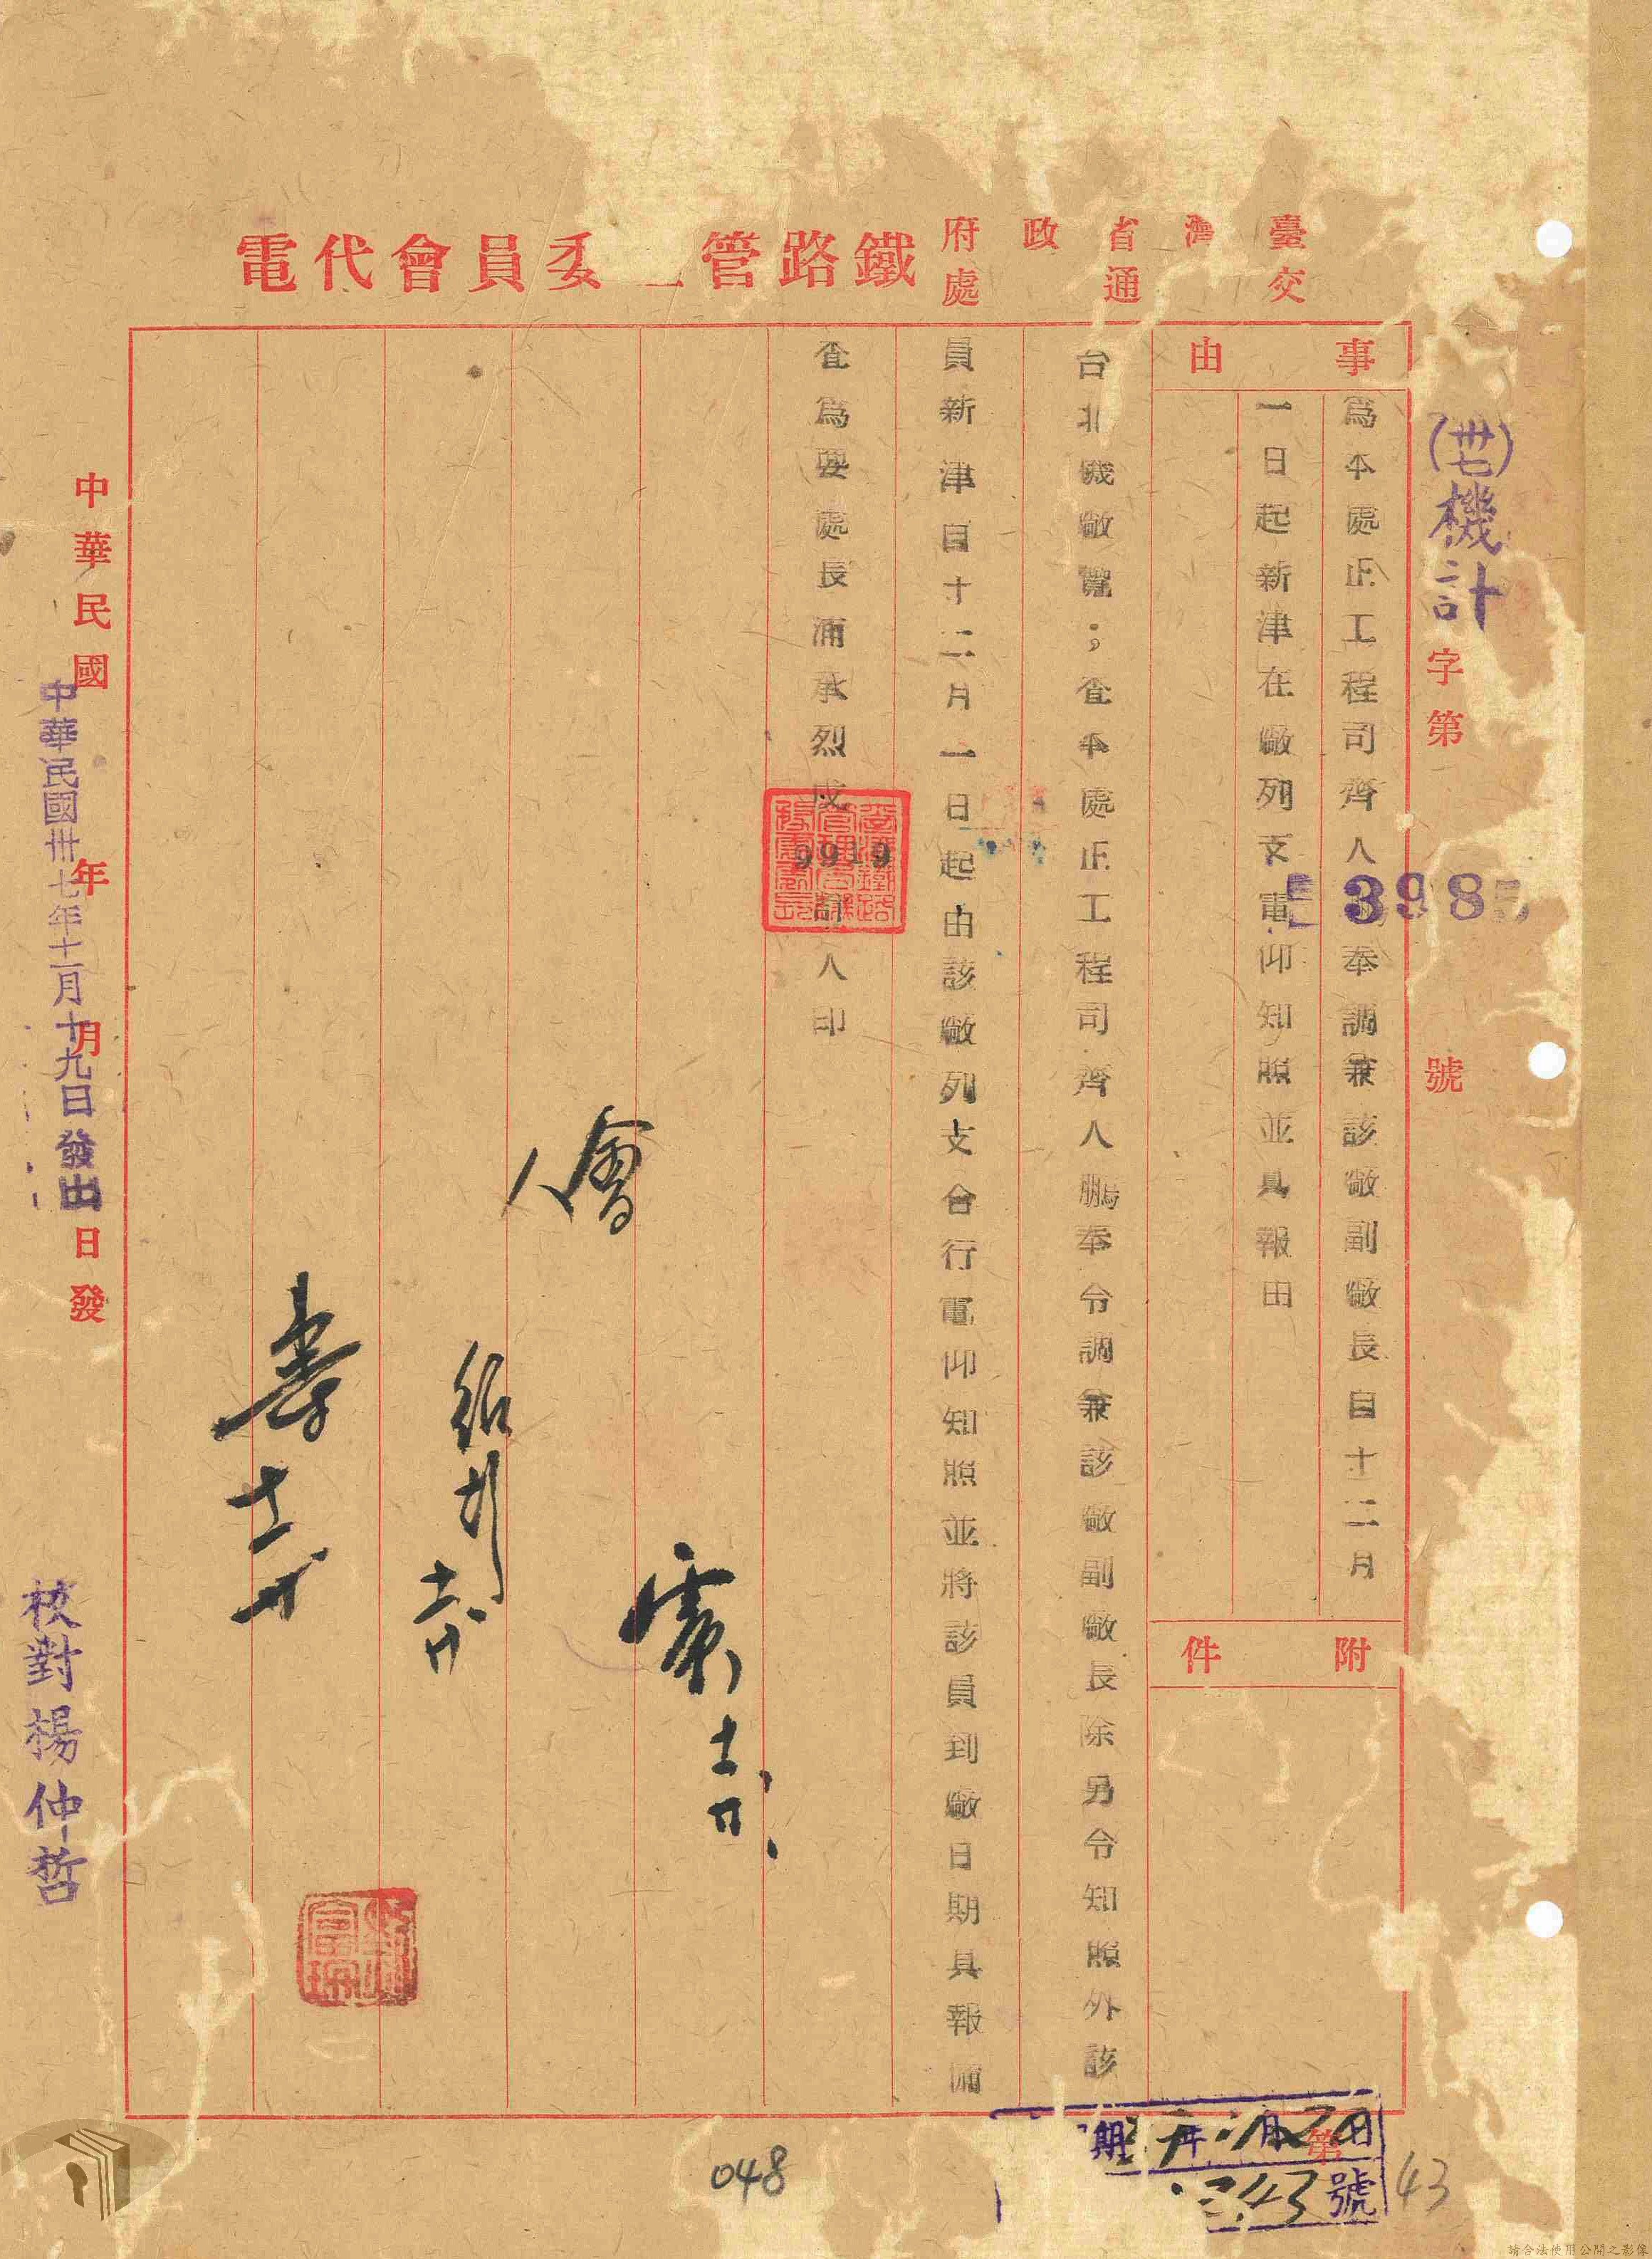 臺灣省政府
交通處
鐵路管委員會代電
(卅七)機計
字第
3985
號
事由
為本處正工程司齊人奉調兼該廠副廠長自十二月
一日起新津在廠列支電仰知照並具報由
附件
台北機廠覽；查本處正工程司齊人鵬奉令調兼該廠副廠長除另令知照外該
員新津自十二月一日起由該廠列支合行電仰知照並將該員到廠日期具報備
查為要處長浦承烈戌
9919
人印
會
人
中華民國 年 月 日發
中華民國卅七年十一月十九日發出
校對楊仲哲
期 年 月 日
第
343號
048
43
請合法使用公開之影像